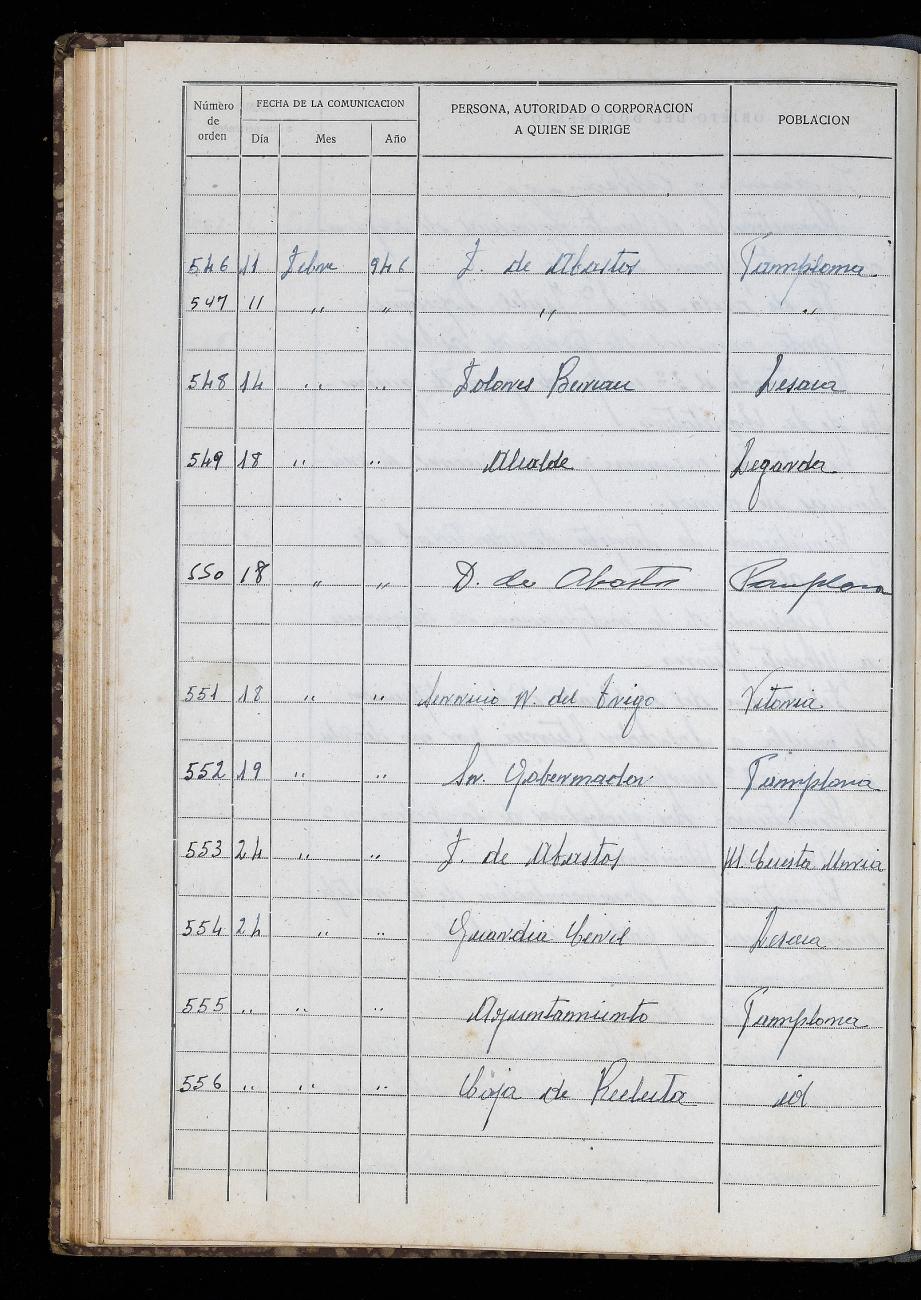 Número de orden FECHA DE LA COMUNICACION PERSONA, AUTORIDAD O CORPORACION A QUIEN SE DIRIGE POBLACION
Día Mes Año
546 11 Febre 946 J. de Abastos Pamplona
547 11 " " " "
548 14 " " Dolores Lesaca
549 18 " " Alcalde Legarda
550 18 " " D. de Abastos Pamplona
551 18 " " Servicio N. del Trigo Vitoria
552 19 " " Sr. Gobernador Pamplona
553 24 " " J. de Abastos M. Cuesta
554 24 " " Guardia Civil Lesaca
555 " " " Ayuntamiento Pamplona
556 " " " Caja de Recluta id